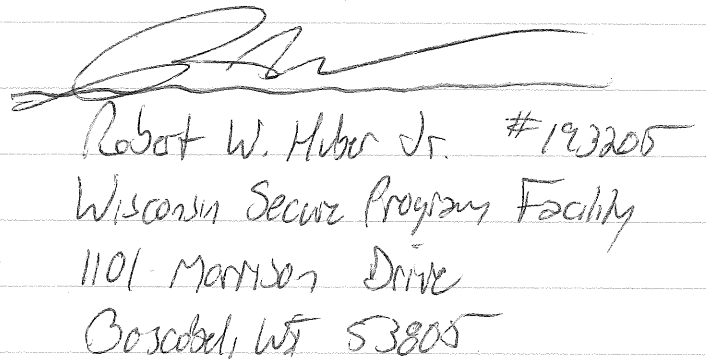 Robert W. Huber Jr. #193205
Wisconsin Secure Program Facility
1101 Morrison Drive
Boscobel, WI 53805